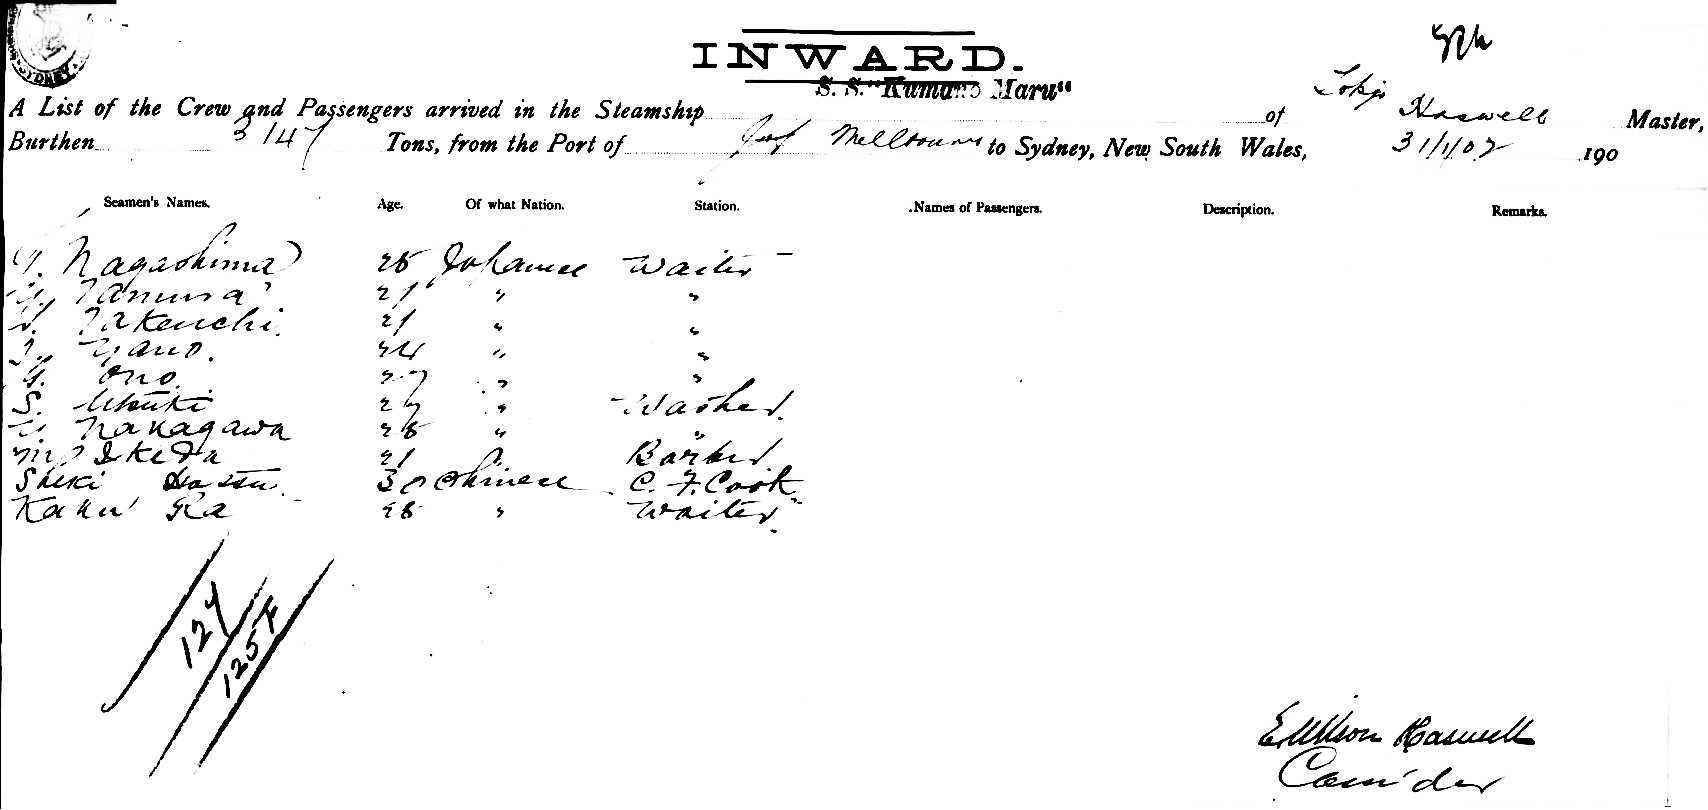 SYDNEY
INWARD.
S. S. "Kumano Maru"
A List of the Crew and Passengers arrived in the Steamship of Tokio Haswell Master,
Burthen 3147 Tons, from the Port of Melbourne to Sydney, New South Wales, 31/1/02 190
Seamen's Names. Age. Of what Nation. Station. Names of Passengers. Description. Remarks.
Nagashima 25 Japanese Waiter
Tamura 21 " "
Takeuchi 21 " "
Yano. 24 " "
Ono 27 " "
S. 27 " Washer.
Nakagawa 28 " "
M. Ikeda 21 Barber
Sheki 30 Chinese C. F. Cook
Ra 28 " Waiter
124
125
Haswell